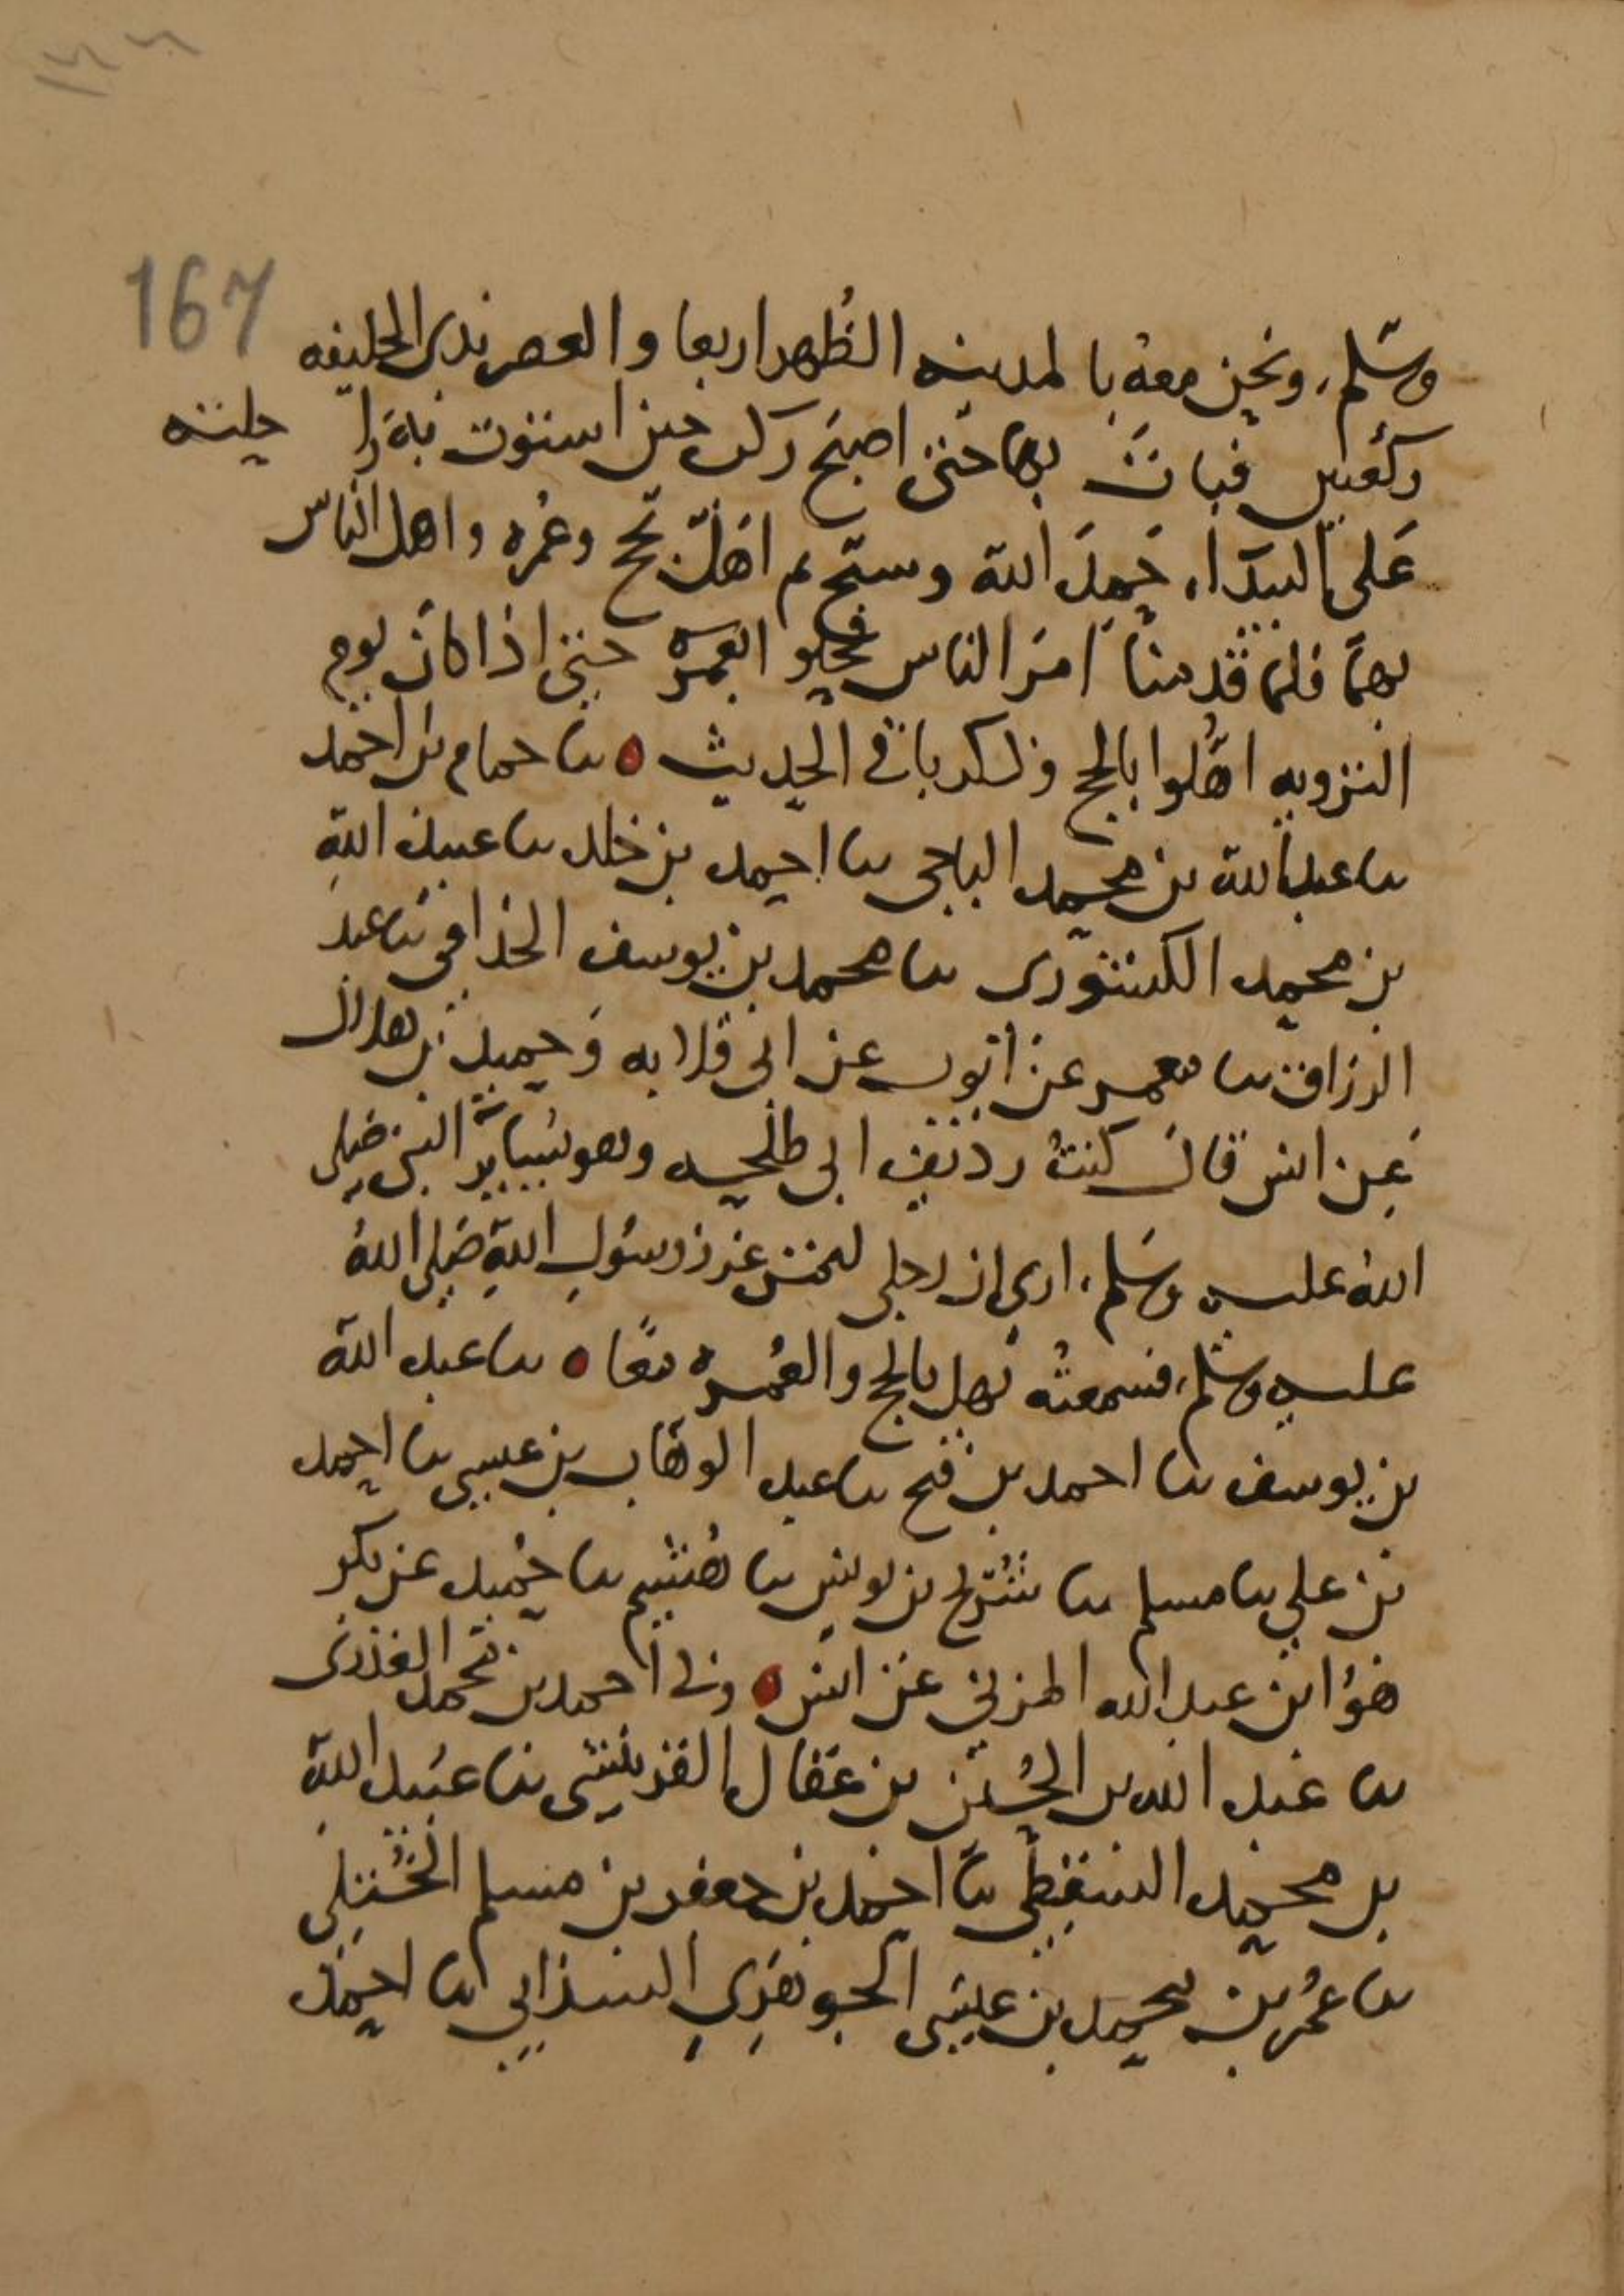 167
وسلم، ونحن معه بالمدينه الظهر اربعا والعصر بذى الحليفه
ركعتين فبات بها حتى اصبح ركب حتى استوت به راحلته
على البيداء، حمد الله وسبح ثم اهل بحج وعمره واهل الناس
بهما فلما قدمنا امر الناس فحلو العمره حتى اذا كان يوم
الترويه اهلوا بالحج وذكر باقي الحديث ٥ ثنا حمام بن احمد
ثنا عبد الله بن محمد الباجى ثنا احمد بن خلد ثنا عبيد الله
بن محمد الكشورى ثنا محمد بن يوسف الحذافى ثنا عبد
الرزاق ثنا معمر عن ايوب عن ابى قلابه وحميد بن هلال
عن انس قال كنت رديف ابى طلحه وهو يساير النبى صلى
الله عليه وسلم، ارى ان رجلى لتمس غرز رسول الله صلى الله
عليه وسلم، فسمعته يهل بالحج والعمره معا ٥ ثنا عبد الله
بن يوسف ثنا احمد بن فتح ثنا عبد الوهاب بن عيسى ثنا احمد
بن على ثنا مسلم ثنا شريح بن يونس ثنا هشيم ثنا حميد عن بكر
هو ابن عبد الله المزني عن انس ٥ وني احمد بن محمد العذرى
ثنا عبد الله بن الحسن بن عقال القرينشى ثنا عبيد الله
بن محمد السقطى ثنا احمد بن جعفر بن مسلم الختلى
ثنا عمر بن محمد بن عيسى الجوهرى السذابي ثنا احمد